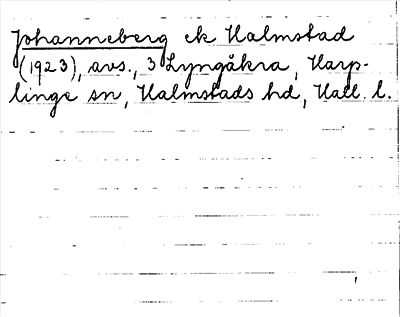 Johanneberg ek Halmstad
(1923), avs., 3 Lyngåkra, Harp-
linge sn, Halmstads hd, Hall. l.